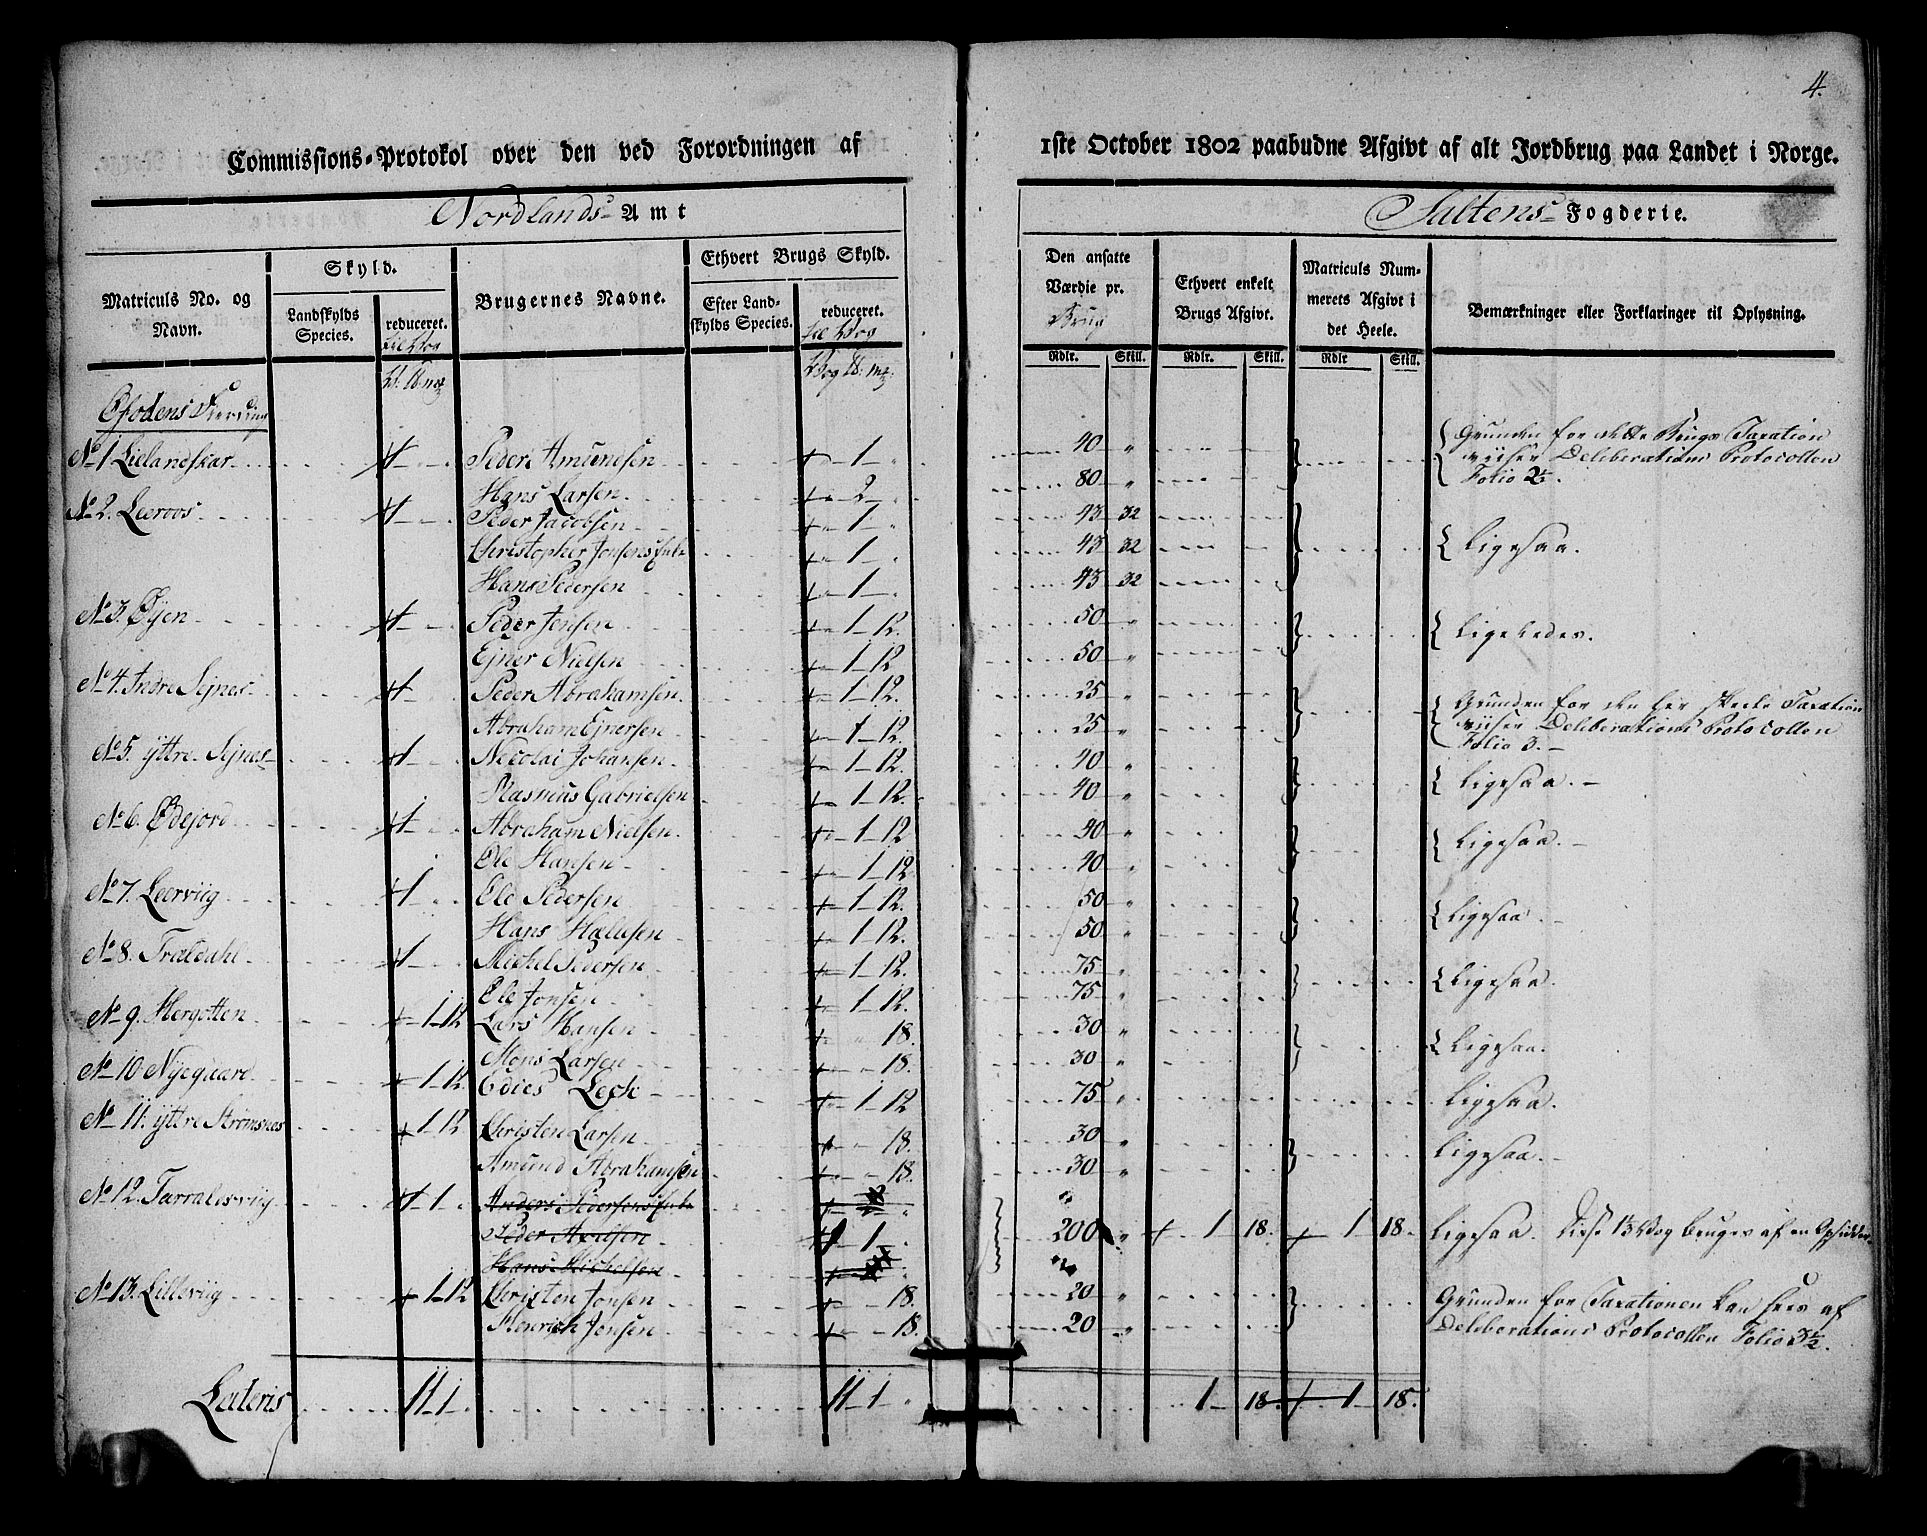 4.
Commissions-Protokol over den ved Forordningen af 1ste October 1802 paabudne Afgivt af alt Jordbrug paa Landet i Norge.
Nordlands Amt
Saltens Fogderie.
Matriculs No. og Navn.
Skyld.
Landskylds Species.
reduceret.
til Vog
Brugernes Navne.
Ethvert Brugs Skyld.
Efter Landskylds Species.
reduceret.
til Vog
Vog ℔: mk:
Den ansatte Værdie pr.
Brug
Rdlr. Skill.
Ethvert enkelt Brugs Afgivt.
Rdlr. Skill.
Matriculs Nummerets Afgivt i det Heele.
Rdlr Skill.
Bemærkninger eller Forklaringer til Oplysning.
Ofodens Fierding
No 1 Lielandskar Peder Amundsen 1 40 " Grunden for dette Brugs Taxation
viiser Deliberations Protocollen
Hans Larsen 2 80 " Folio 2½.
No 2. Leeroos Peder Jacobsen 1 43 32
Christopher Jonsens Enke 1 43 32 Ligesaa.
Hans Pedersen 1 43 32
No 3. Øyen Peder Jensen 1 12. 50 " Ligeledes.
Ejner Nielsen 1 12 50 "
No 4. Indre Sejnes Peder Abrahamsen 1 12. 25 " Grunden for den her skeede Taxation
Abraham Ejnersen 1 12. 25 " viiser Deliberations Protocollen
Folio 3.
No 5. yttre Sejnes Nicolai Johansen 1 12. 40 " Ligesaa.
Rasmus Gabrielsen 1 12. 40 "
No 6. Ødejord Abraham Nielsen 1 12 40 " Ligesaa.
Ole Hansen 1 12 40 "
No 7. Leerviig 1 Ole Pedersen 1 12. 50 " Ligesaa.
Hans 1 12. 50 "
No 8. Traldahl Michel Pedersen 1 12. 75 " Ligesaa.
Ole Jonsen 1 12. 75 "
No 9. Hergotten 1 12 Lars Hansen 18. 30 " Ligesaa.
Mons Larsen 18. 30 "
No 10 Nyegaard 1 12. Lech 1 12 75 " Ligesaa.
No 11. yttre Strømsnes 1 12 Christen Larsen 18. 30 " Ligesaa.
Amund Abrahamsen 18. 30 "
No 12. Tarraldsviig 1 Anders Pedersens Enke
Peder Axelsen 1 200 " 1 18. 1 18. Ligesaa. Disse 1⅓ Vog bruges af en Opsidder
Hans Michelsen
No 13. Lilleviig 1 12 Christen Jonsen 18. 20 " Grunden for Taxationen kan sees af
Henrich Jonsen 18. 20 " Deliberations Protocollen Folio 3½.
Lateris 11 1 11 1 1 18 1 18.